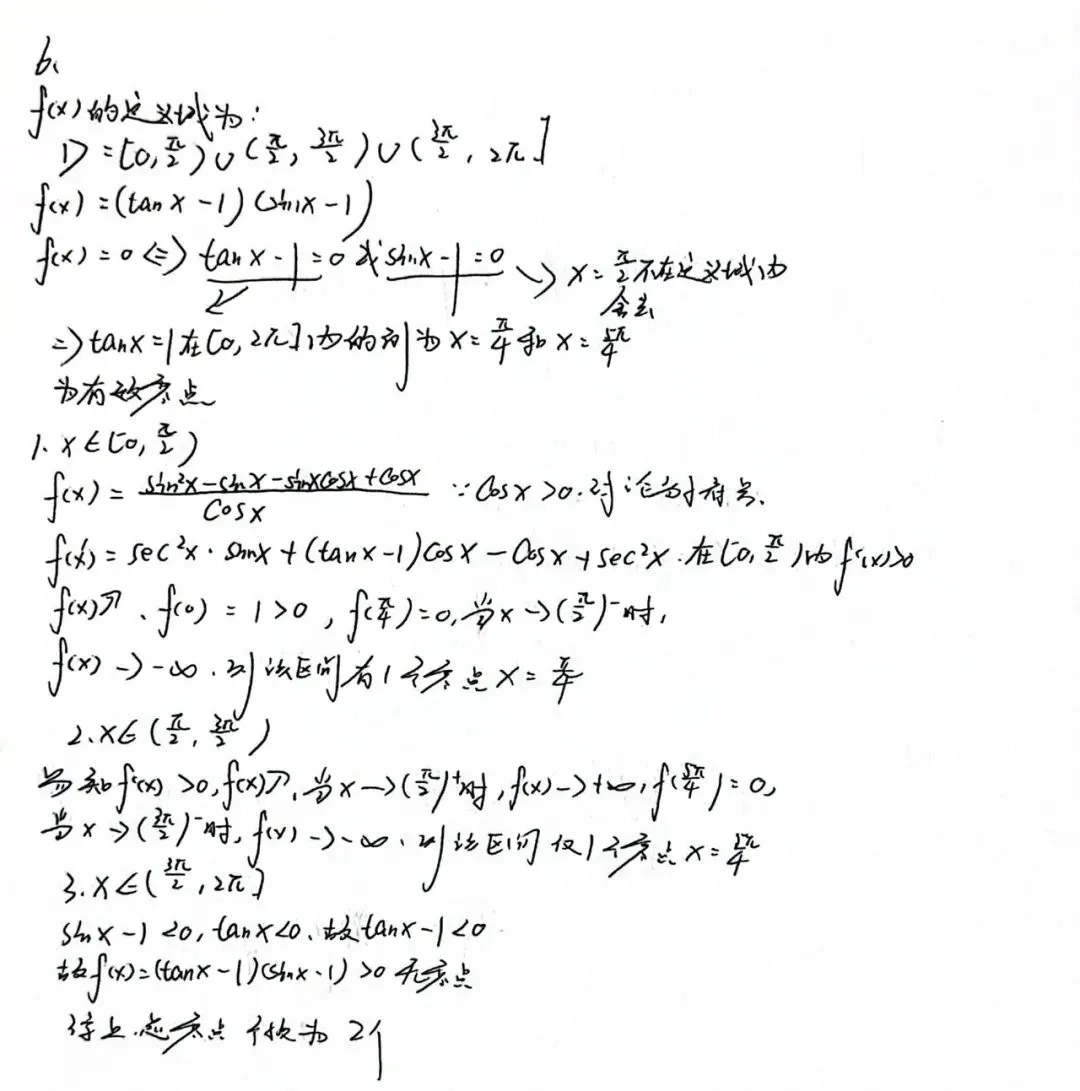 6、
f(x)的定义域为:
D=[0,π/2)∪(π/2,3π/2)∪(3π/2,2π]
f(x)=(tanx-1)(sinx-1)
f(x)=0⇔tanx-1=0或sinx-1=0 → x=π/2不在定义域内
舍去
=>tanx=1在[0,2π]内的 为x=π/4和x=5π/4
为有效零点
1.x∈[0,π/2)
f(x)=(sin²x-sinx-sinxcosx+cosx)/cosx ∵cosx>0.讨论分子符号.
f'(x)=sec²x·sinx+(tanx-1)cosx-cosx+sec²x.在[0,π/2)内f'(x)>0
f(x)↗、f(0)=1>0,f(π/4)=0,当x→(π/2)⁻时,
f(x)→-∞.则该区间有1个零点x=π/4
2.x∈(π/2,3π/2)
易知f'(x)>0,f(x)↗.当x→(π/2)⁺时,f(x)→+∞,f(5π/4)=0,
当x→(3π/2)⁻时,f(x)→-∞.则该区间仅1个零点x=5π/4
3.x∈(3π/2,2π]
sinx-1<0,tanx<0、故tanx-1<0
故f(x)=(tanx-1)(sinx-1)>0无零点
综上.总零点个数为2个